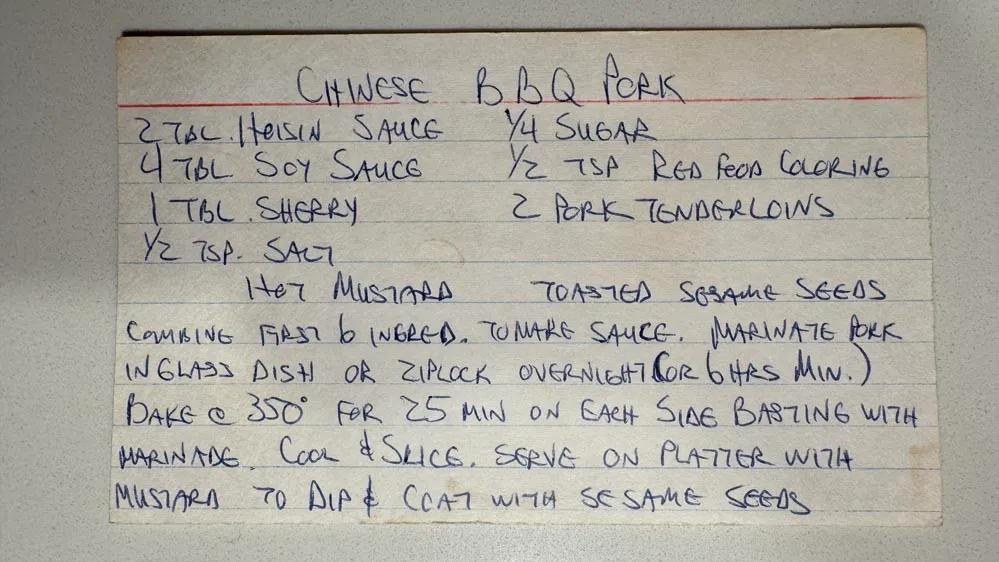 CHINESE BBQ PORK
2 TBL. HOISIN SAUCE 1/4 SUGAR
4 TBL SOY SAUCE 1/2 TSP RED FOOD COLORING
1 TBL. SHERRY 2 PORK TENDERLOINS
1/2 TSP. SALT
HOT MUSTARD TOASTED SESAME SEEDS
COMBINE FIRST 6 INGRED. TO MAKE SAUCE. MARINATE PORK
IN GLASS DISH OR ZIPLOCK OVERNIGHT (OR 6 HRS MIN.)
BAKE @ 350° FOR 25 MIN ON EACH SIDE BASTING WITH
MARINADE. COOL & SLICE. SERVE ON PLATTER WITH
MUSTARD TO DIP & COAT WITH SESAME SEEDS